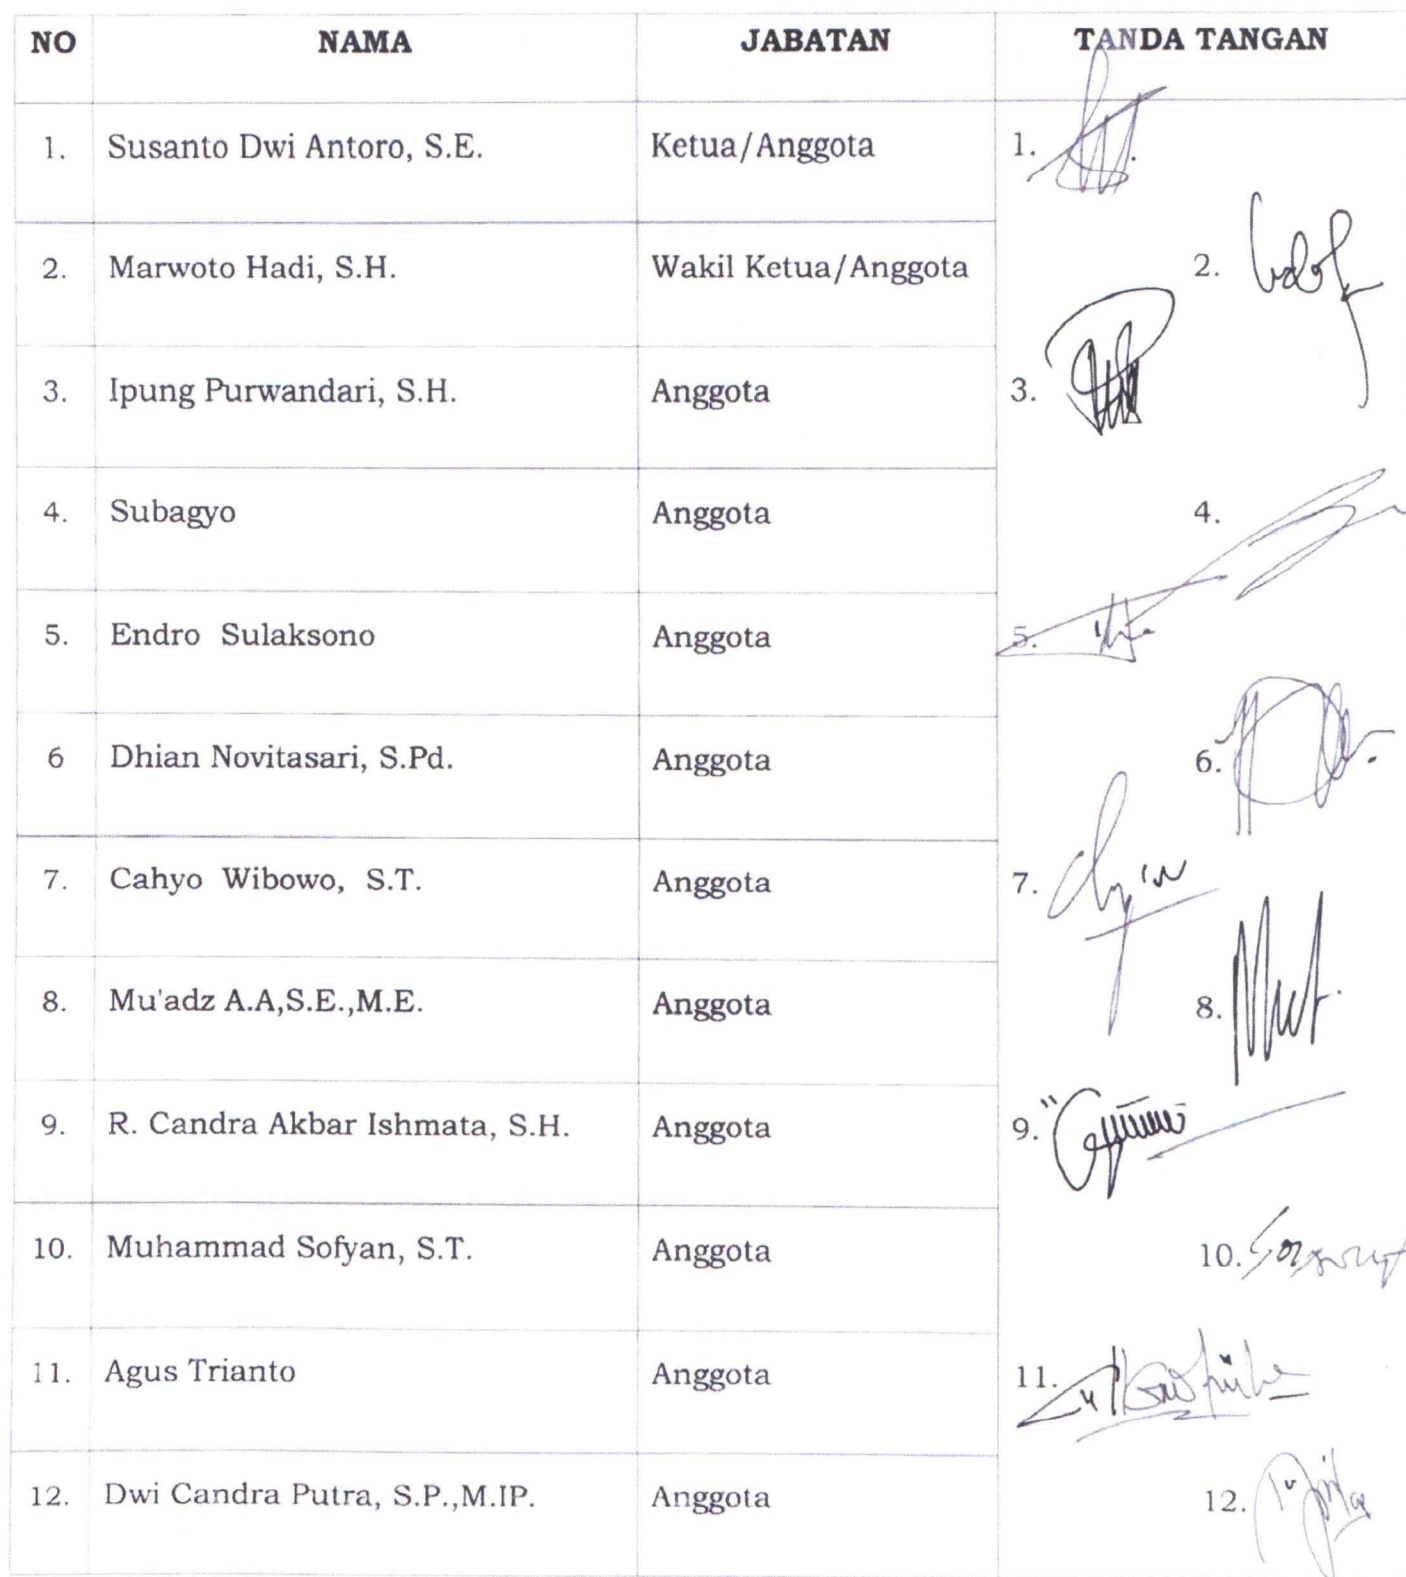 NO NAMA JABATAN TANDA TANGAN
1. Susanto Dwi Antoro, S.E. Ketua/Anggota 1.
2. Marwoto Hadi, S.H. Wakil Ketua/Anggota 2.
3. Ipung Purwandari, S.H. Anggota 3.
4. Subagyo Anggota 4.
5. Endro Sulaksono Anggota 5.
6 Dhian Novitasari, S.Pd. Anggota 6.
7. Cahyo Wibowo, S.T. Anggota 7.
8. Mu'adz A.A,S.E.,M.E. Anggota 8.
9. R. Candra Akbar Ishmata, S.H. Anggota 9.
10. Muhammad Sofyan, S.T. Anggota 10.
11. Agus Trianto Anggota 11.
12. Dwi Candra Putra, S.P.,M.IP. Anggota 12.